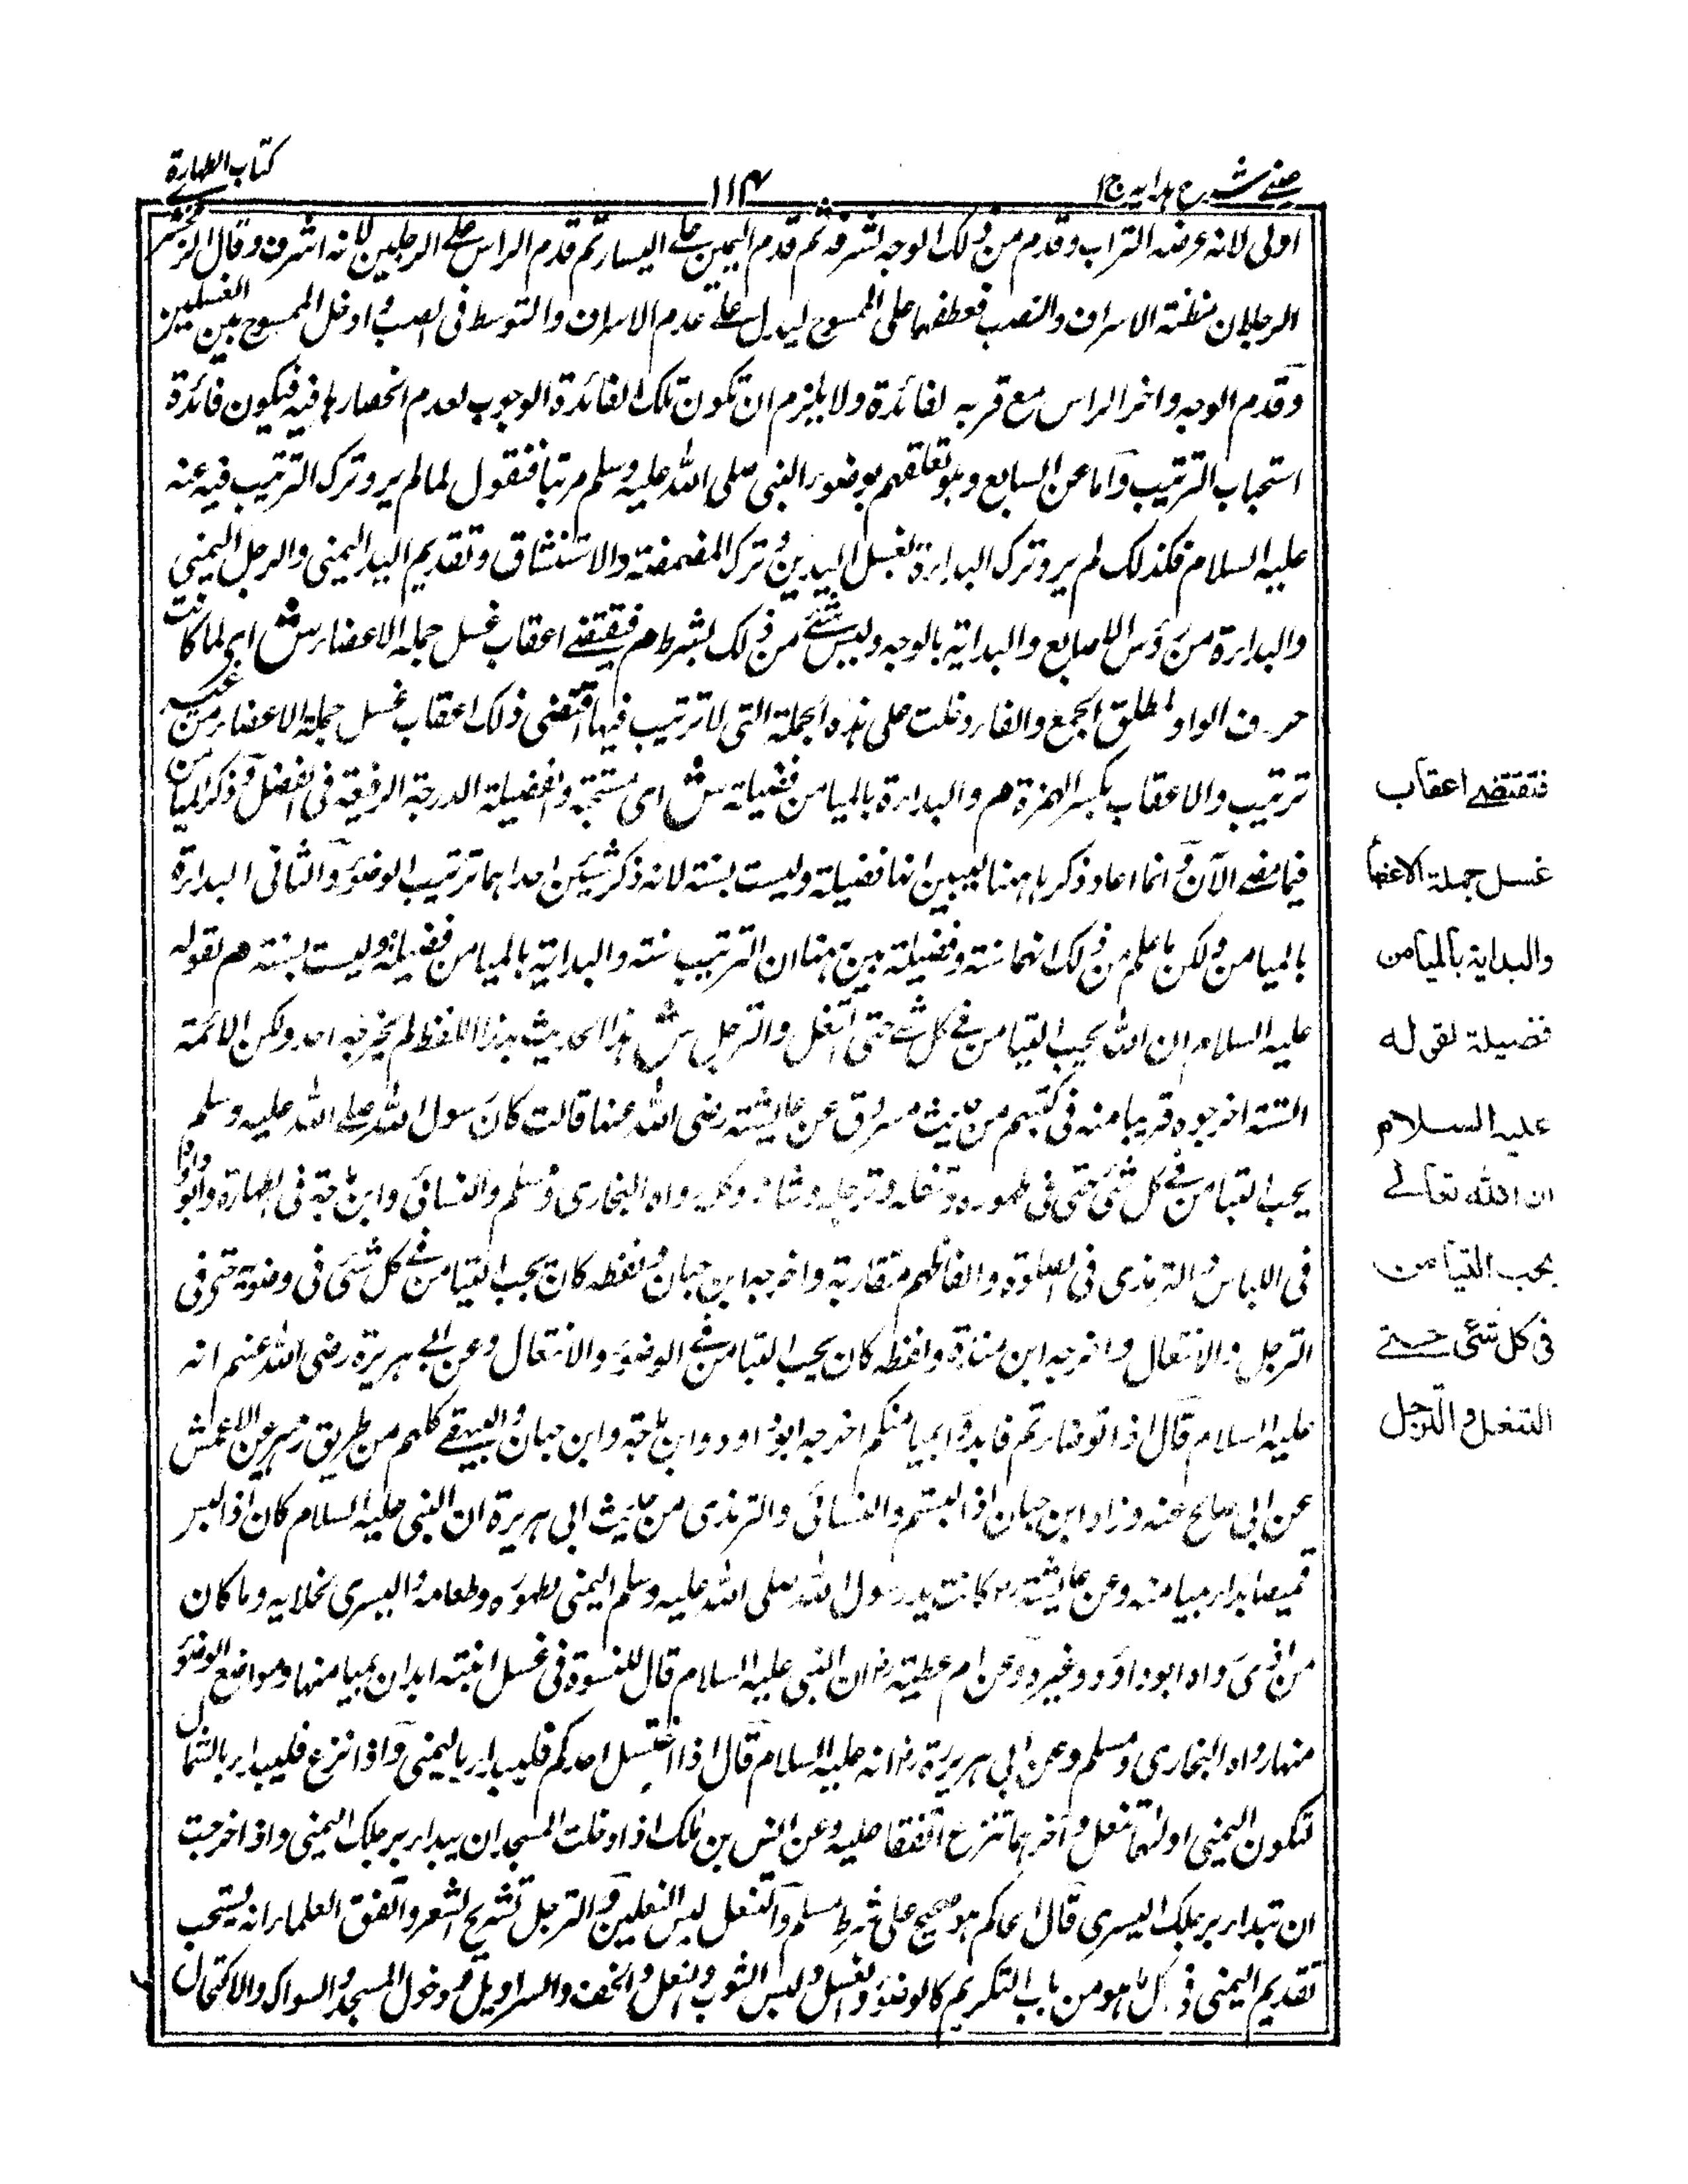 عینی شرح هدایه ج ا
۱۱۴
کتاب الطهارة
اولی لانه عرضه التراب وقدم من ذلك الوجه لشرفه ثم قدم الیمین علی الیسار ثم قدم الراس علی الرجلین لانه اشرف وقال الزمخشری
الرجلان مظنته الاسراف والنصب فعطفها علی الممسوح لیدل علی عدم الاسراف والتوسط فی الصب و ادخل الممسوح بین الغسلین
وقدم الوجه واخر الراس مع قربه لفائدة ولا یلزم ان تکون تلك الفائدة الوجوب لعدم انحصارها فیه فیکون فائدة
استحباب الترتیب واما عن السابع وهو تعلقهم بوضوء النبی صلی الله علیه وسلم مرتبا فنقول لما لم یرو ترك الترتیب فیه عنه
علیه السلام فکذلك لم یرو ترك البداءة بغسل الیدین و ترك المضمضة والاستنشاق وتقدیم الید الیمنی والرجل الیمنی
والبداءة من رؤس الاصابع والبدایة بالوجه ولیس شئ من ذلك بشرط م فیقتضے اعقاب غسل جملة الاعضاء ش ای لما کانت
حرف الواو لمطلق الجمع والفاء دخلت علی هذه الجملة التی لا ترتیب فیها اقتضی ذلك اعقاب غسل جملة الاعضاء من غیر
ترتیب والاعقاب بکسر الهمزة م والبداءة بالمیامن فضیلة ش ای مستحبة والفضیلة الدرجة الرفیعة فی الفضل وذکر المیامن
فیما مضے الآن و انما اعاد ذکرها ههنا لیبین انها فضیلة ولیست بسنة لانه ذکر شیئین احدهما ترتیب الوضوء والثانی البداءة
بالمیامن ولکن ما علم من ذلك انهما سنة وفضیلة بین هنا ان الترتیب سنة والبدایة بالمیامن فضیلة ولیست بسنة م لقوله
علیه السلام ان الله یحب التیامن فی کل شئ حتی التنعل والترجل ش هذا الحدیث بهذا اللفظ لم یخرجه احد ولکن الائمة
الستة اخرجوه قریبا منه فی کتبهم من حدیث مسروق عن عایشة رضی الله عنها قالت کان رسول الله صلے الله علیه وسلم
یحب التیامن فی کل شئ حتی فی طهوره وتنعله وترجله وشانه کله رواه البخاری ومسلم والنسائی وابن ماجة فی الطهارة وابو داؤد
فی اللباس والترمذی فی الصلوة والفاظهم متقاربة واخرجه ابن حبان ولفظه کان یحب التیامن فی کل شئ فی وضوئه حتی فی
الترجل والانتعال واخرجه ابن مندة ولفظه کان یحب التیامن فی الوضوء والانتعال وعن ابی هریرة رضی الله عنهم انه
علیه السلام قال اذا توضاءتم فابدؤا بمیامنکم اخرجه ابو داود وابن ماجة وابن حبان والبیهقی کلهم من طریق زهیر عن الاعمش
عن ابی صالح عنه وزاد ابن حبان اذا لبستم والنسائی والترمذی من حدیث ابی هریرة ان النبی علیه السلام کان اذا لبس
قمیصا بداء بمیامنه وعن عایشة رض کانت ید رسول الله صلی الله علیه وسلم الیمنی لطهوره وطعامه والیسری لخلایه وما کان
من اذی رواه ابو داود وغیره وعن ام عطیة رض ان النبی علیه السلام قال للنسوة فی غسل ابنته ابدان بمیامنها ومواضع الوضوء
منها رواه البخاری ومسلم وعن ابی هریرة رض انه علیه السلام قال اذا انتعل احدکم فلیبداء بالیمنی واذا نزع فلیبداء بالشمال
لتکون الیمنی اولهما تنعل وآخرهما تنزع اتفقا علیه وعن انس بن مالك اذا دخلت المسجد ان یبداء برجلك الیمنی واذا خرجت
ان تبداء برجلك الیسری قال الحاکم هو صحیح علی شرط مسلم والتنعل لبس النعلین والترجل تسریح الشعر واتفق العلماء انه یستحب
تقدیم الیمنی فی کل ما هو من باب التکریم کالوضوء والغسل ولبس الثوب والنعل والخف والسراویل و دخول المسجد والسواك والاکتحال
فتقتضے اعقاب
غسل جملة الاعضاء
والبدایة بالمیامن
فضیلة لقوله
علیه السلام
ان الله تعالے
یحب التیامن
فی کل شئ حتے
التنعل والترجل